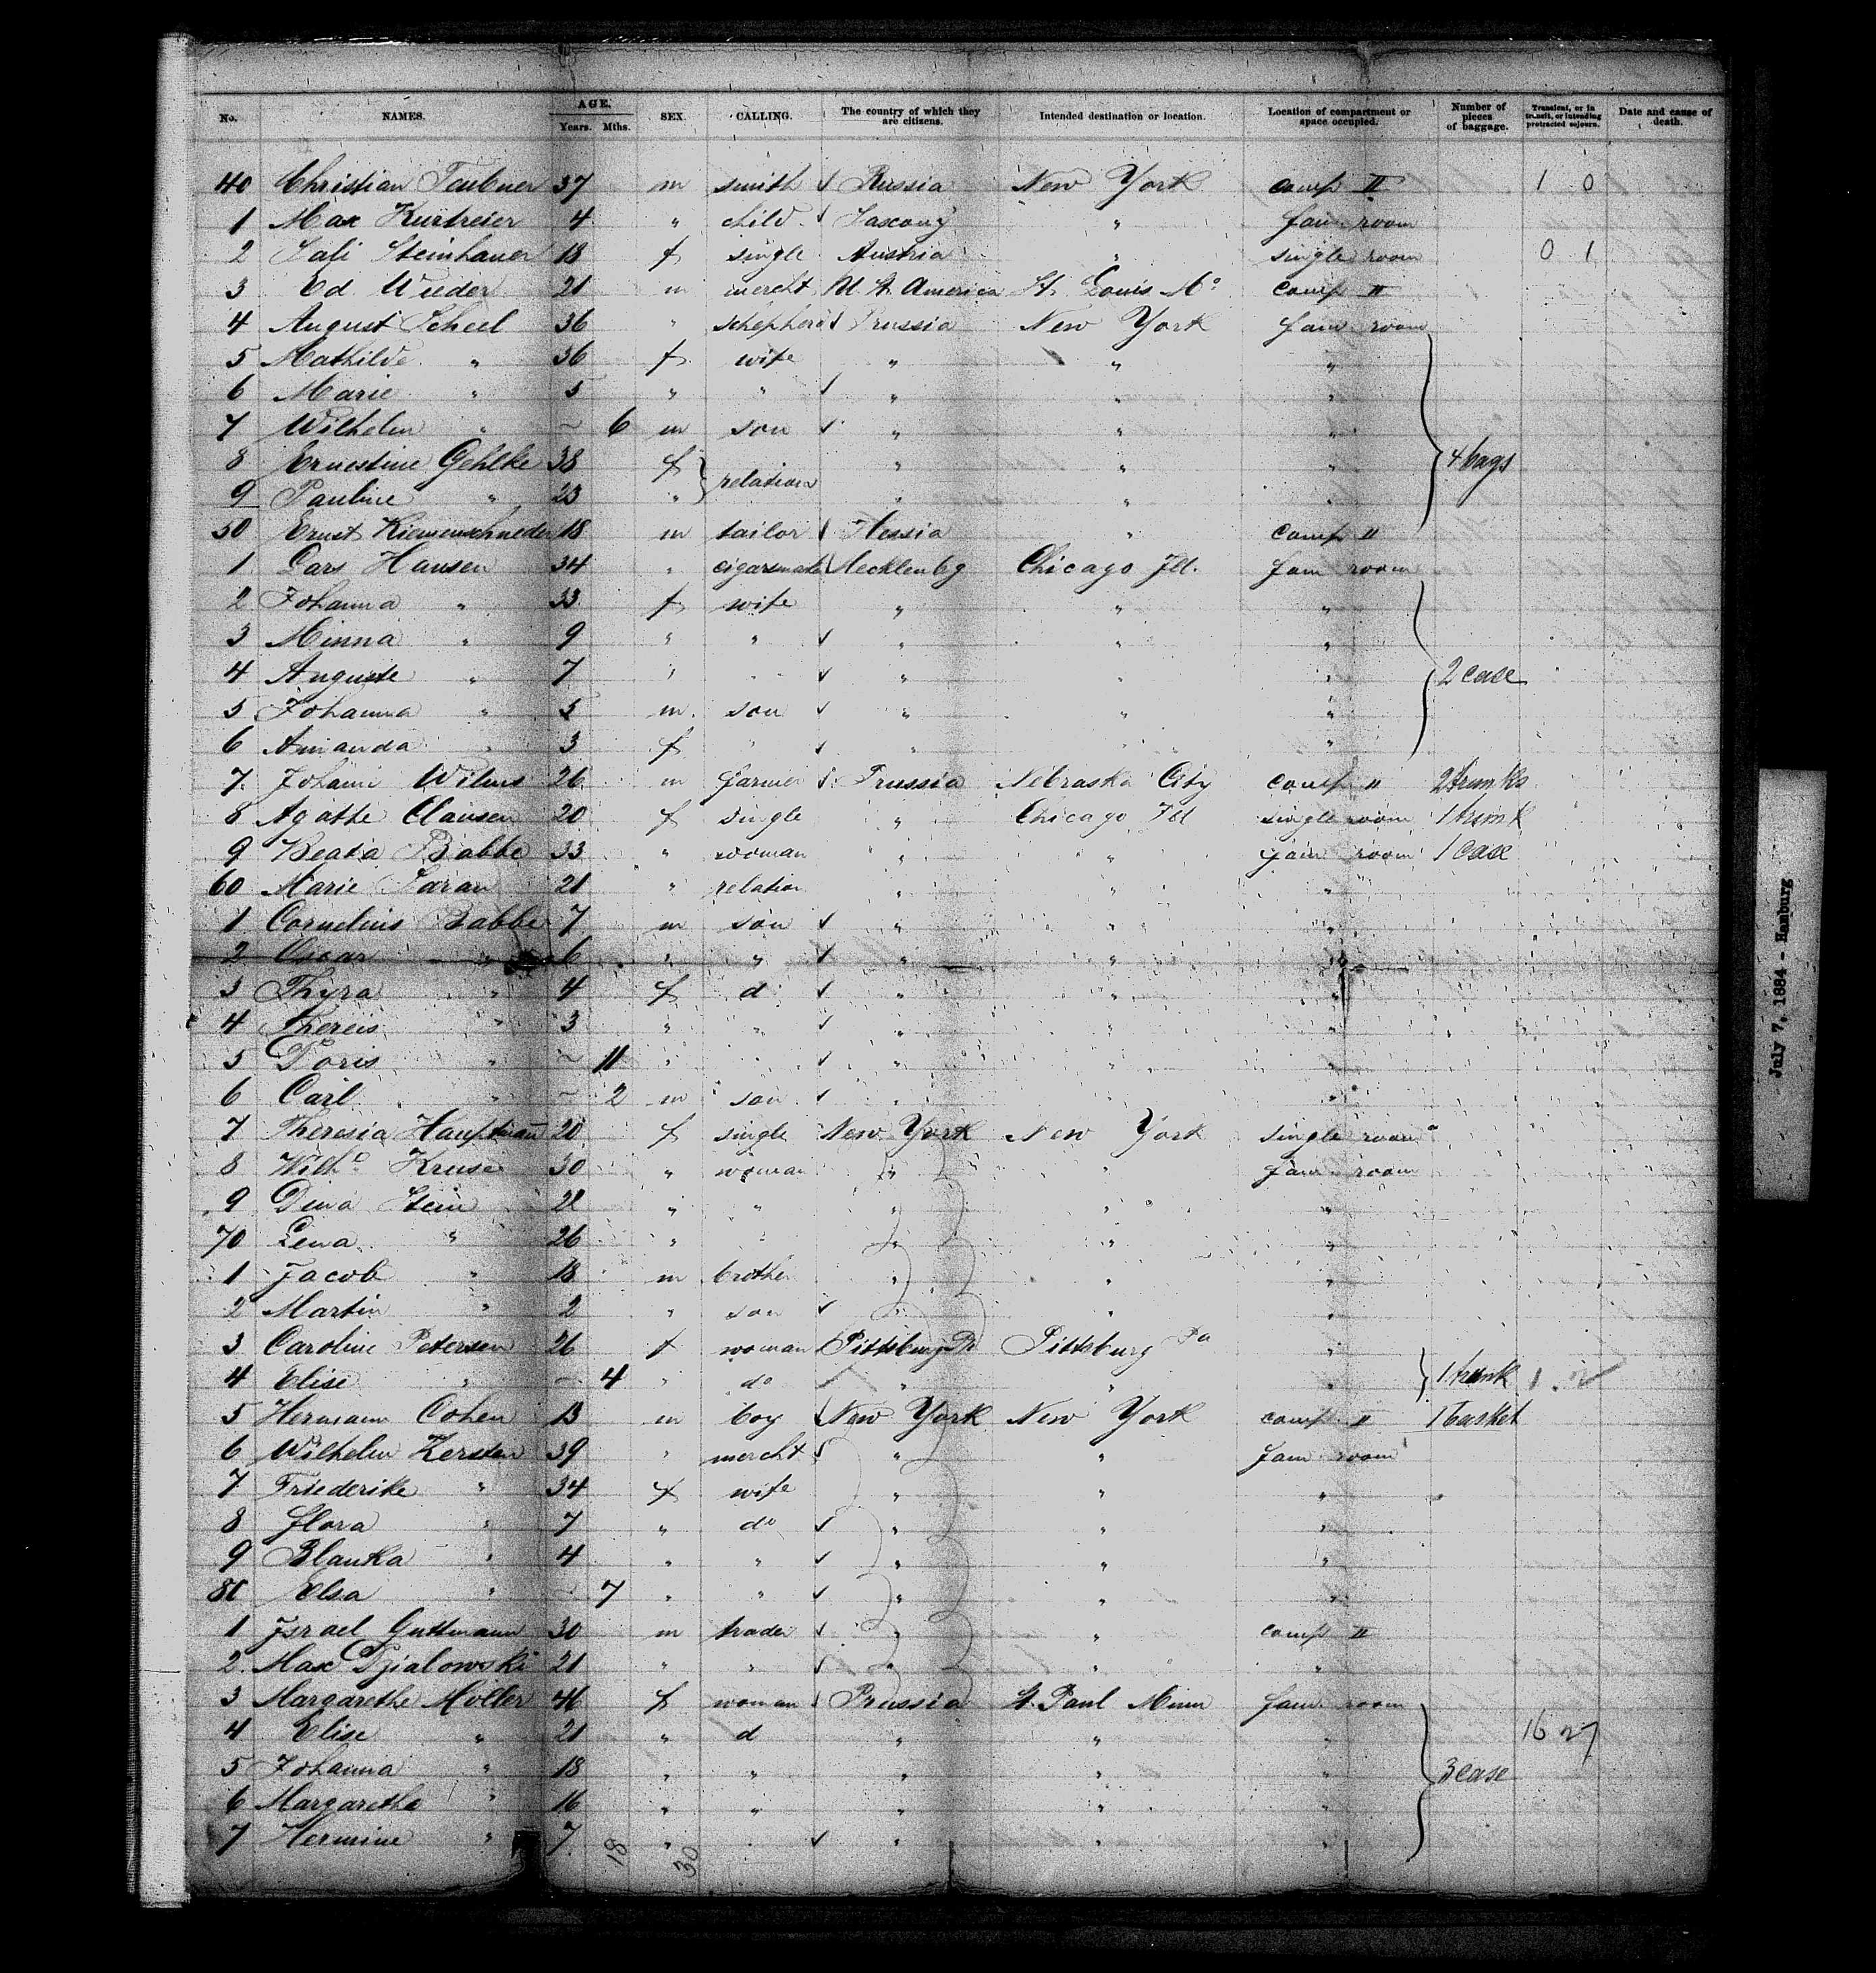 No. NAMES. AGE. Years. Mths. SEX. CALLING. The country of which they are citizens. Intended destination or location. Location of compartment or space occupied. Number of pieces of baggage. Transient, or in transit, or intending protracted sojourn. Date and cause of death.
40 Christian Teubner 37 m smith Russia New York comp II 1 0
1 Max 4 " child " fam room
2 Steinhauer 18 f single Austria " single room 0 1
3 Ed. Wieder 21 m mercht America St. Louis Mo comp II
4 August Scheel 36 " Schepherd Prussia New York fam room
5 Mathilde " 36 f wife " " "
6 Marie " 5 " " " " "
7 Wilhelm " ~ 6 m son " " "
8 Ernestine Gehlke 38 f relation " " " 4 bags
9 Pauline " 23 " " " "
50 Ernst 18 m tailor Hessia " comp II
1 Lars Hansen 34 " Mecklenbg Chicago Ill. fam room
2 Johanna " 33 f wife " " "
3 Minna " 9 " " " " "
4 Auguste " 7 " " " " " 2 case
5 Johanna " 5 m son " " "
6 Amanda " 3 f " " " "
7. Johann Wilms 26 m farmer Prussia Nebraska City comp II 2 trunks
8 Agathe Clausen 20 f single " Chicago Ill single room 1 trunk
9 Beata Babbe 33 " woman " " fam room 1 case
60 Marie 21 " relation " " "
1 Cornelius Babbe 7 m son " " "
2 Oscar " 6 " " " " "
3 Thyra " 4 f d " " "
4 " 3 " " " " "
5 Doris " ~ 11 " " " " "
6 Carl " ~ 2 m son " " "
7 Theresia Hauptmañ 20 f single New York New York single room
8 Wilhe Kruse 30 " woman " " fam room
9 Dina Stein 28 " " " " "
70 Lena " 26 " " " " "
1 Jacob " 18 m brother " " "
2 Martin " 2 " son " " "
3 Caroline Petersen 26 f woman Pittsburg Pa Pittsburg Pa "
4 Elise " - 4 " do " " " 1 trunk
5 Hermann Cohen 13 m boy New York New York comp II 1 basket
6 Wilhelm Kersten 39 " mercht " " fam room
7 Friederike " 34 f wife " " "
8 Flora " 7 " do " " "
9 Blanka " 4 " " " " "
80 Elsa " - 7 " " " " "
1 Israel Guttmann 30 m trader " " comp II
2. Max Dzialowski 21 " " " " "
3 Margarethe Moller 46 f woman Prussia St. Paul Minn fam room
4 Elise " 21 " d " " " 16 27
5 Johanna " 18 " " " " " 3 case
6 Margaretha " 16 " " " " "
7 Hermine " 7 " " " " "
18 30
July 7, 1884 - Hamburg